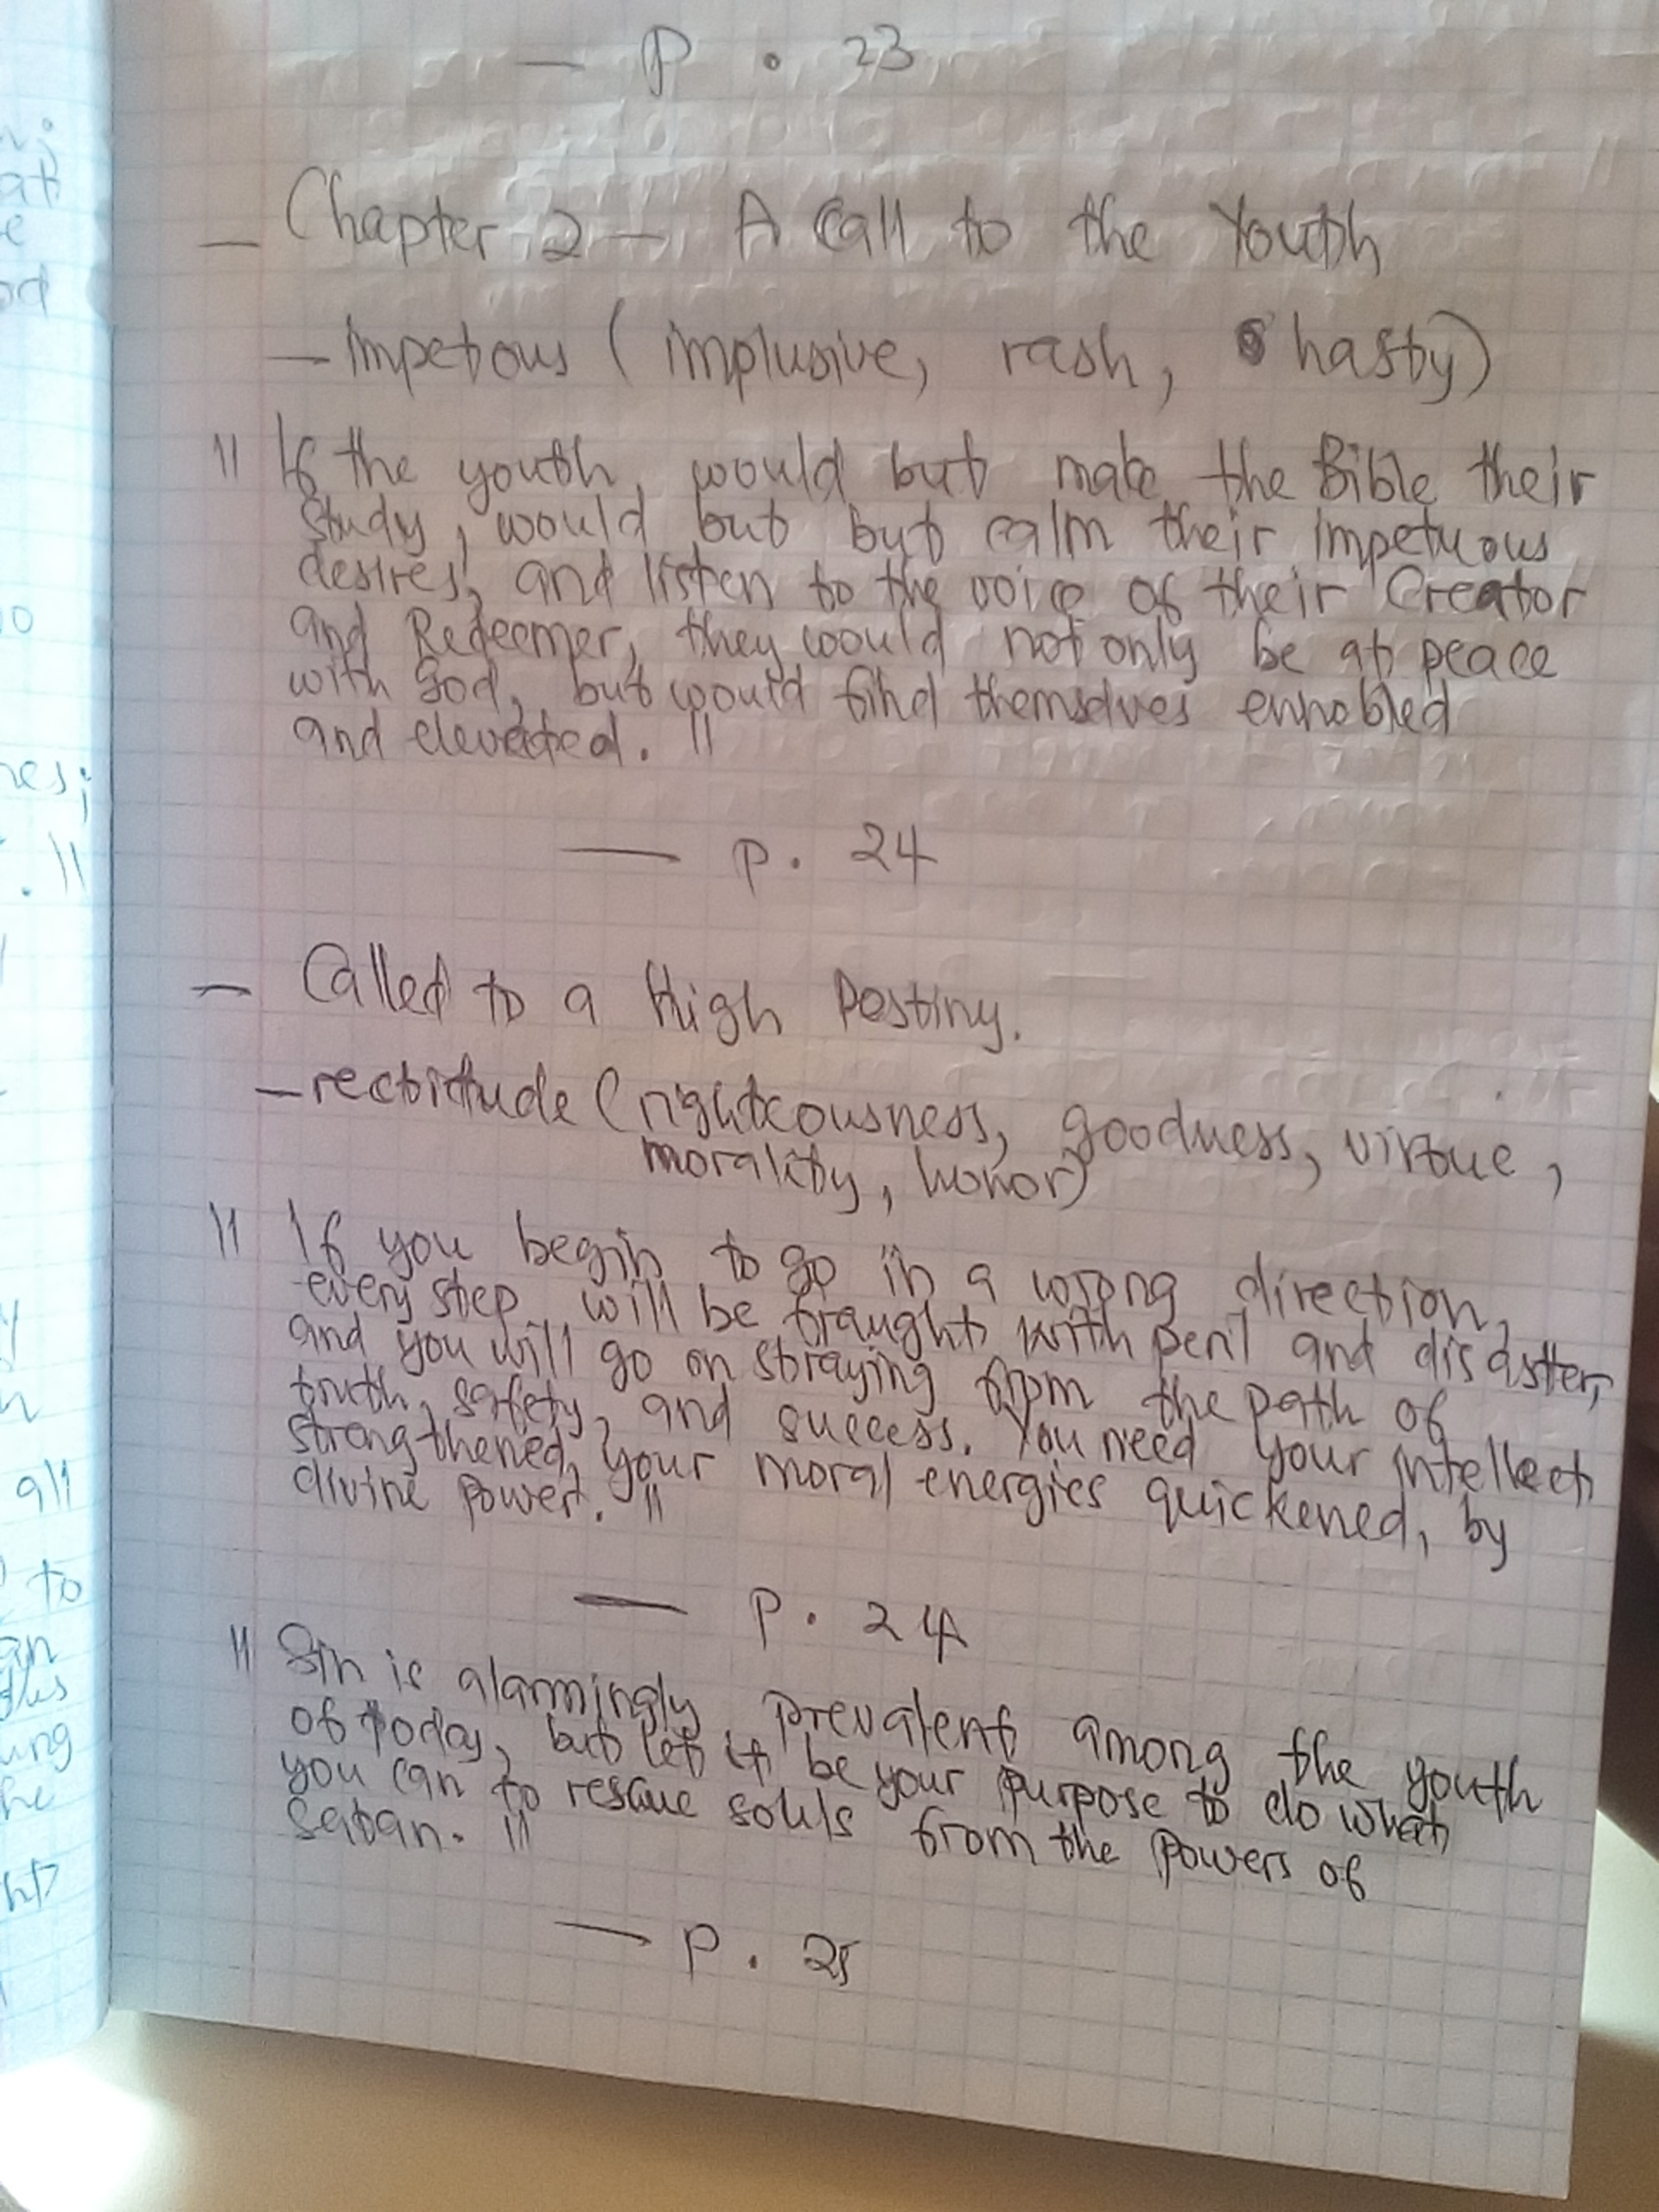 — P . 23
— Chapter 2 — A Call to the Youth
— Impetous (implusive, rash, hasty)
" If the youth would but make the Bible their
study, would but but calm their impetuous
desires, and listen to the voice of their Creator
and Redeemer, they would not only be at peace
with God, but would find themselves ennobled
and elevated. "
— P. 24
— Called to a High Destiny.
— rectitude (righteousness, goodness, virtue,
morality, honor)
" If you begin to go in a wrong direction,
every step will be fraught with peril and disaster,
and you will go on straying from the path of
truth, safety, and success. You need your intellect
strengthened, your moral energies quickened, by
divine power. "
— P. 24
" Sin is alarmingly prevalent among the youth
of today, but let it be your purpose to do what
you can to rescue souls from the powers of
Satan. "
— P. 25